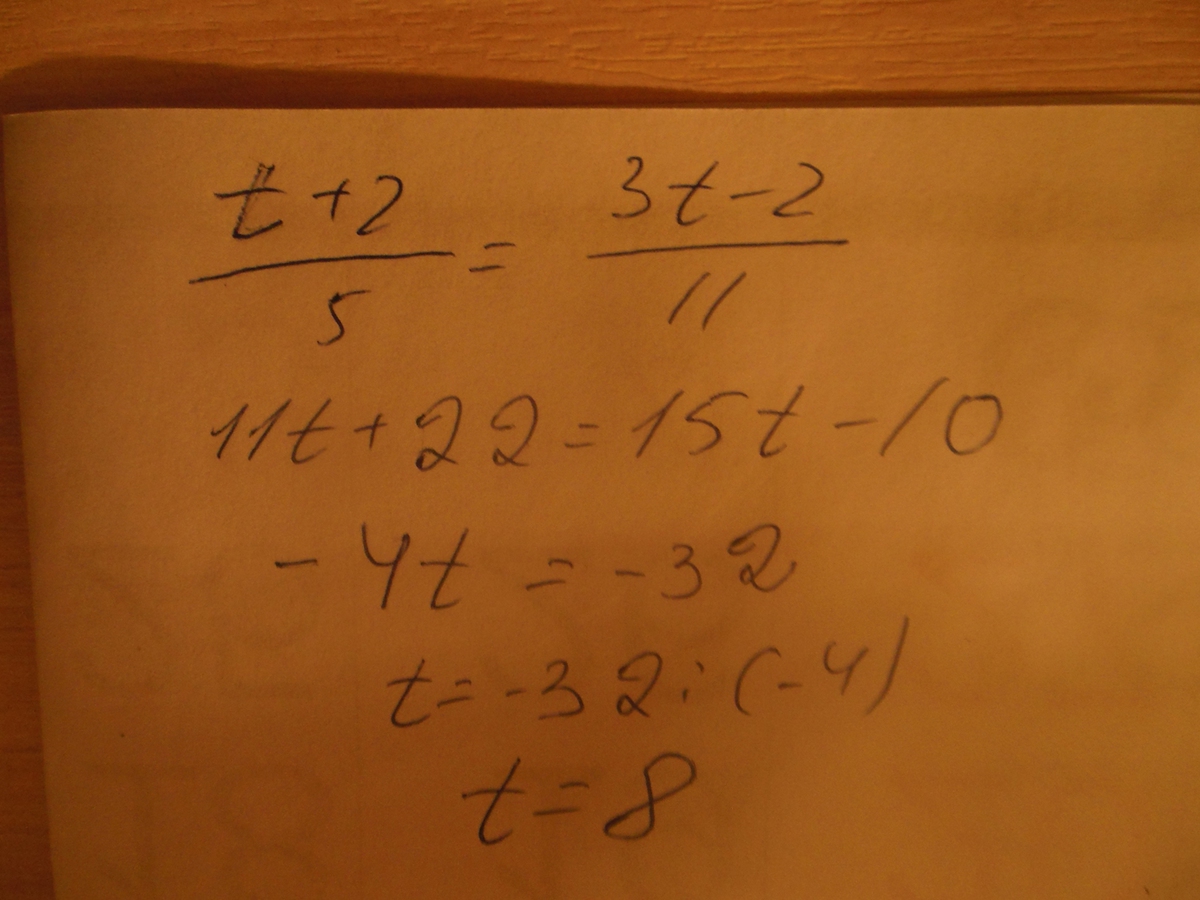 t+2/5 = 3t-2/11
11t+22=15t-10
-4t = -32
t=-32:(-4)
t=8